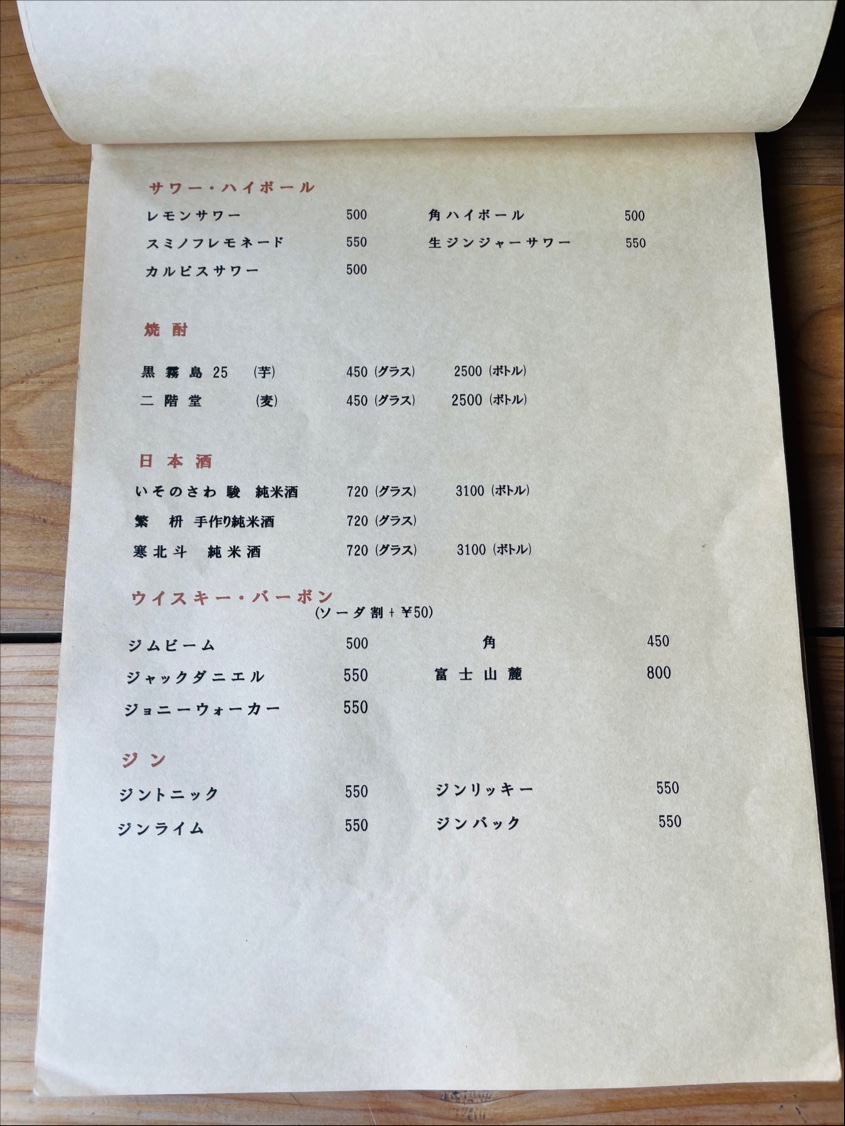 サワー・ハイボール
レモンサワー 500 角ハイボール 500
スミノフレモネード 550 生ジンジャーサワー 550
カルピスサワー 500
焼酎
黒霧島25 (芋) 450 (グラス) 2500 (ボトル)
二階堂 (麦) 450 (グラス) 2500 (ボトル)
日本酒
いそのさわ 駿 純米酒 720 (グラス) 3100 (ボトル)
繁枡 手作り純米酒 720 (グラス)
寒北斗 純米酒 720 (グラス) 3100 (ボトル)
ウイスキー・バーボン
(ソーダ割+¥50)
ジムビーム 500 角 450
ジャックダニエル 550 富士山麓 800
ジョニーウォーカー 550
ジン
ジントニック 550 ジンリッキー 550
ジンライム 550 ジンバック 550